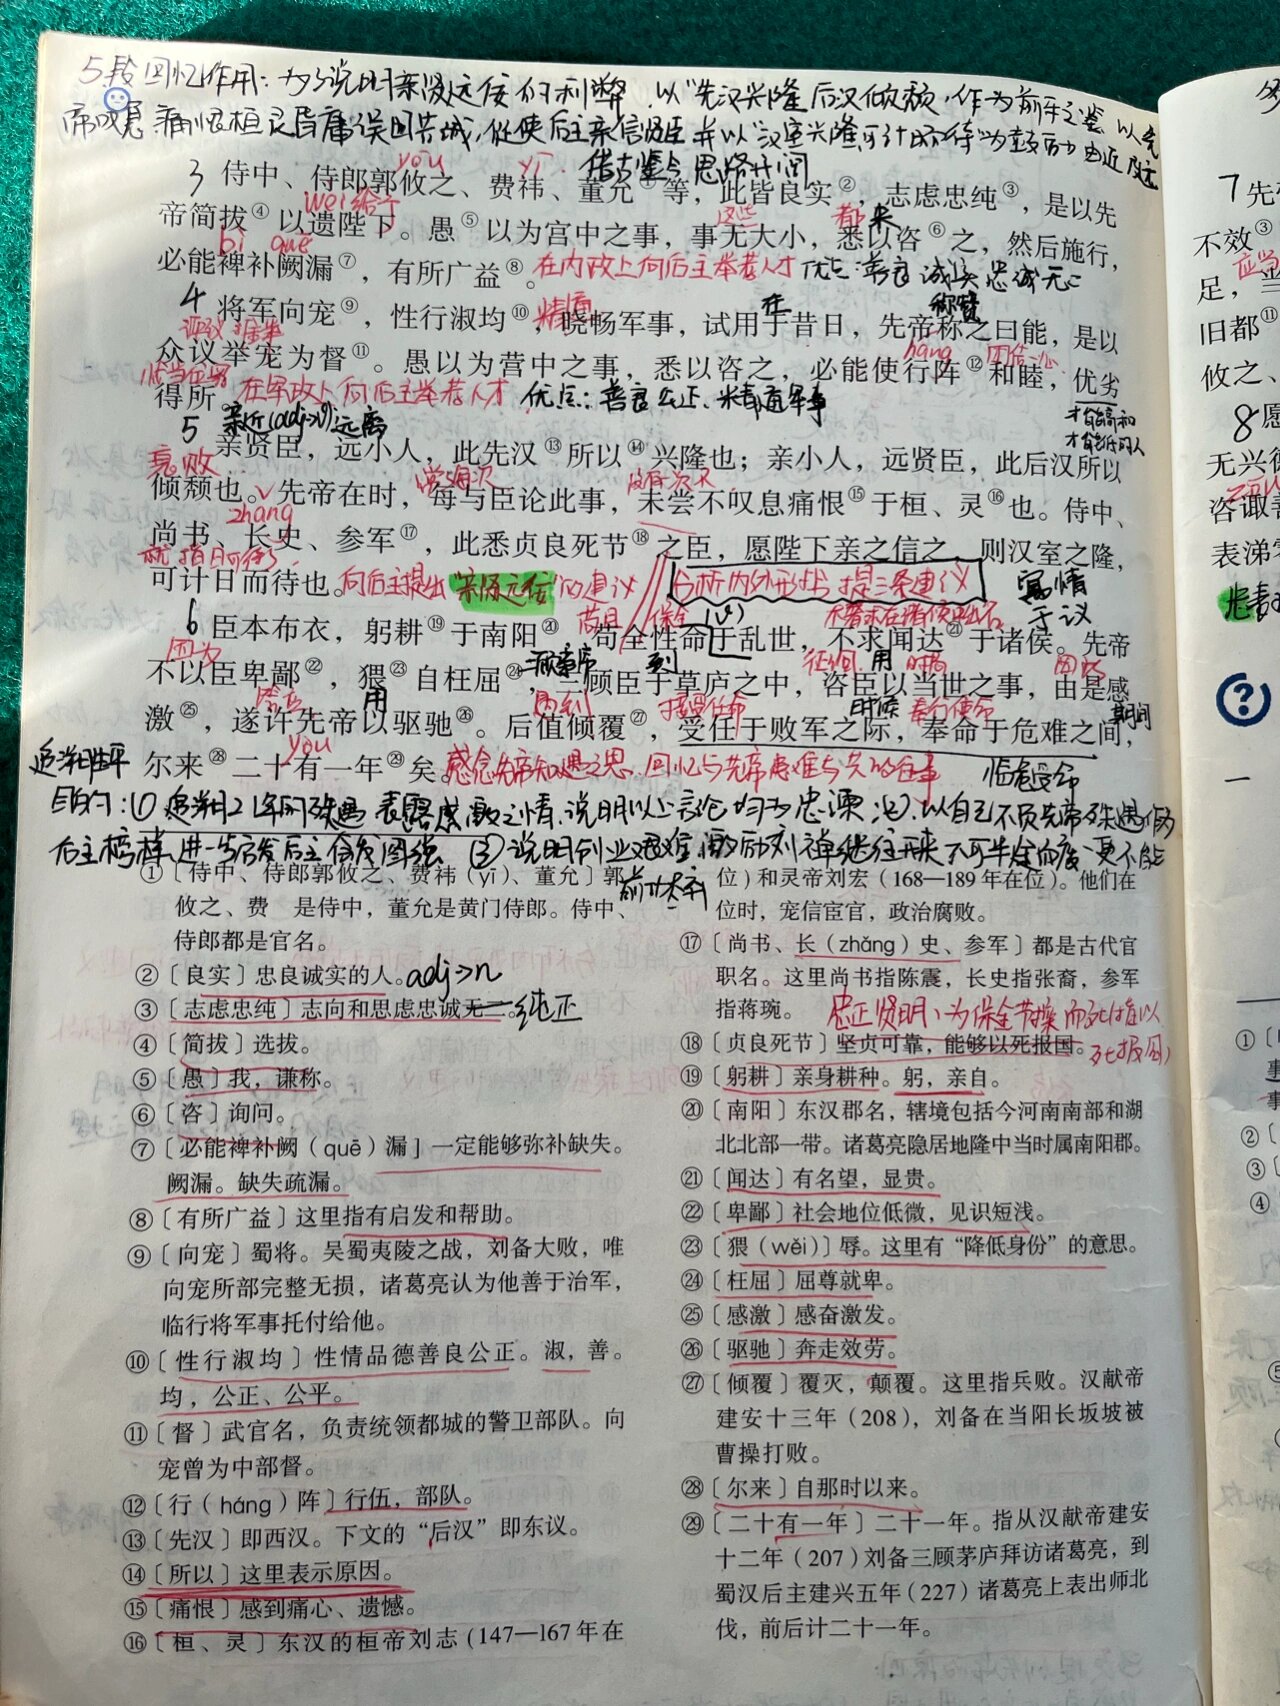 5段回忆作用：为了说明亲贤远佞的利弊，以“先汉兴隆后汉倾颓”作为前车之鉴，以先
帝叹息痛恨桓灵昏庸误国为诫，促使后主亲信贤臣，并以“汉室兴隆可计日而待”为鼓励，由近及远
借古鉴今 思路开阔
yōu yī
3 侍中、侍郎郭攸之、费祎、董允①等，此皆良实②，志虑忠纯③，是以先
wèi给予 这些 都 来
帝简拔④以遗陛下。愚⑤以为宫中之事，事无大小，悉以咨⑥之，然后施行，
bì quē
必能裨补阙漏⑦，有所广益⑧。在内政上向后主举荐人才 优点：善良 诚实 忠诚无二
精通 在 称赞
4 将军向宠⑨，性行淑均⑩，晓畅军事，试用于昔日，先帝称之曰能，是以
háng 团结
众议举宠为督⑪。愚以为营中之事，悉以咨之，必能使行阵⑫和睦，优劣
得所。在军政上向后主举荐人才 优点：善良公正、精通军事
才能高和
才能低的人
亲近(adj>v)远离
5 亲贤臣，远小人，此先汉⑬所以⑭兴隆也；亲小人，远贤臣，此后汉所以
衰败
倾颓也。先帝在时，每与臣论此事，未尝不叹息痛恨⑮于桓、灵⑯也。侍中、
zhǎng
尚书、长史、参军⑰，此悉贞良死节⑱之臣，愿陛下亲之信之，则汉室之隆，
可计日而待也。向后主提出“亲贤远佞”的建议 分析内外形势 提三条建议 寓情
于议
苟且 保全
6 臣本布衣，躬耕⑲于南阳⑳，苟全性命于乱世，不求闻达㉑于诸侯。先帝
因为 到 征询 用 时局 因此
不以臣卑鄙㉒，猥㉓自枉屈㉔，三顾臣于草庐之中，咨臣以当世之事，由是感
用 遇到 接受任命 时候 奉行使命 期间
激㉕，遂许先帝以驱驰㉖。后值倾覆㉗，受任于败军之际，奉命于危难之间，
yòu
追述生平 尔来㉘二十有一年㉙矣。感念先帝知遇之恩，回忆与先帝患难与共的往事 临危受命
目的：(1)追述21年的殊遇，表露感激之情，说明以上言论均为忠谏 (2)以自己不负先帝殊遇作为
后主榜样，进一步启发后主奋发图强 (3)说明创业艰难，激励刘禅继往开来不可半途而废，更不能
前功尽弃
①〔侍中、侍郎郭攸之、费祎（yī）、董允〕郭
攸之、费 是侍中，董允是黄门侍郎。侍中、
侍郎都是官名。
②〔良实〕忠良诚实的人。adj>n
③〔志虑忠纯〕志向和思虑忠诚无二。纯正
④〔简拔〕选拔。
⑤〔愚〕我，谦称。
⑥〔咨〕询问。
⑦〔必能裨补阙（quē）漏〕一定能够弥补缺失。
阙漏。缺失疏漏。
⑧〔有所广益〕这里指有启发和帮助。
⑨〔向宠〕蜀将。吴蜀夷陵之战，刘备大败，唯
向宠所部完整无损，诸葛亮认为他善于治军，
临行将军事托付给他。
⑩〔性行淑均〕性情品德善良公正。淑，善。
均，公正、公平。
⑪〔督〕武官名，负责统领都城的警卫部队。向
宠曾为中部督。
⑫〔行（háng）阵〕行伍，部队。
⑬〔先汉〕即西汉。下文的“后汉”即东议。
⑭〔所以〕这里表示原因。
⑮〔痛恨〕感到痛心、遗憾。
⑯〔桓、灵〕东汉的桓帝刘志（147—167年在
位）和灵帝刘宏（168—189年在位）。他们在
位时，宠信宦官，政治腐败。
⑰〔尚书、长（zhǎng）史、参军〕都是古代官
职名。这里尚书指陈震，长史指张裔，参军
指蒋琬。
忠正贤明、为保全节操而死(能以
死报国)
⑱〔贞良死节〕坚贞可靠，能够以死报国。
⑲〔躬耕〕亲身耕种。躬，亲自。
⑳〔南阳〕东汉郡名，辖境包括今河南南部和湖
北北部一带。诸葛亮隐居地隆中当时属南阳郡。
㉑〔闻达〕有名望，显贵。
㉒〔卑鄙〕社会地位低微，见识短浅。
㉓〔猥（wěi）〕辱。这里有“降低身份”的意思。
㉔〔枉屈〕屈尊就卑。
㉕〔感激〕感奋激发。
㉖〔驱驰〕奔走效劳。
㉗〔倾覆〕覆灭，颠覆。这里指兵败。汉献帝
建安十三年（208），刘备在当阳长坂坡被
曹操打败。
㉘〔尔来〕自那时以来。
㉙〔二十有一年〕二十一年。指从汉献帝建安
十二年（207）刘备三顾茅庐拜访诸葛亮，到
蜀汉后主建兴五年（227）诸葛亮上表出师北
伐，前后计二十一年。
7 先
不效③
足，
旧都⑪
攸之、
8 愿
无兴德
咨诹善
表涕零